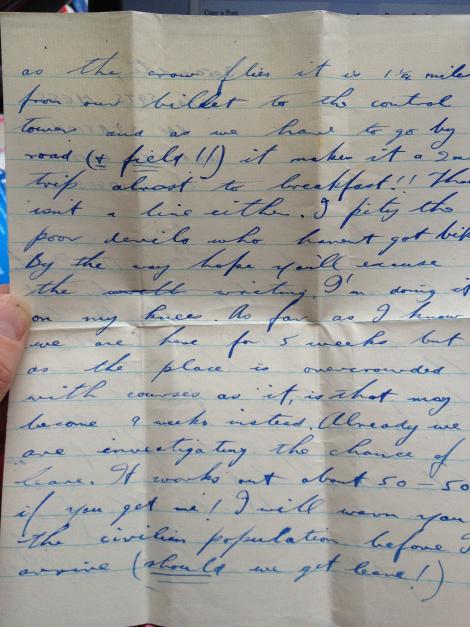 as the crow flies it is 1¼ miles
from our billet to the control
tower and as we have to go by
road (& field!!) it makes it a 2m
trip almost to breakfast!! That
isn't a line either. I pity the
poor devils who haven't got bik
By the way hope you'll excuse
the writing. I'm doing it
on my knees. As far as I know
we are here for 5 weeks but
as the place is overcrowded
with courses as it is that may
become 9 weeks instead. Already we
are investigating the chance of
leave. It works out about 50–50
if you get me! I will warn you
the civilian population before I
arrive (should we get leave!)